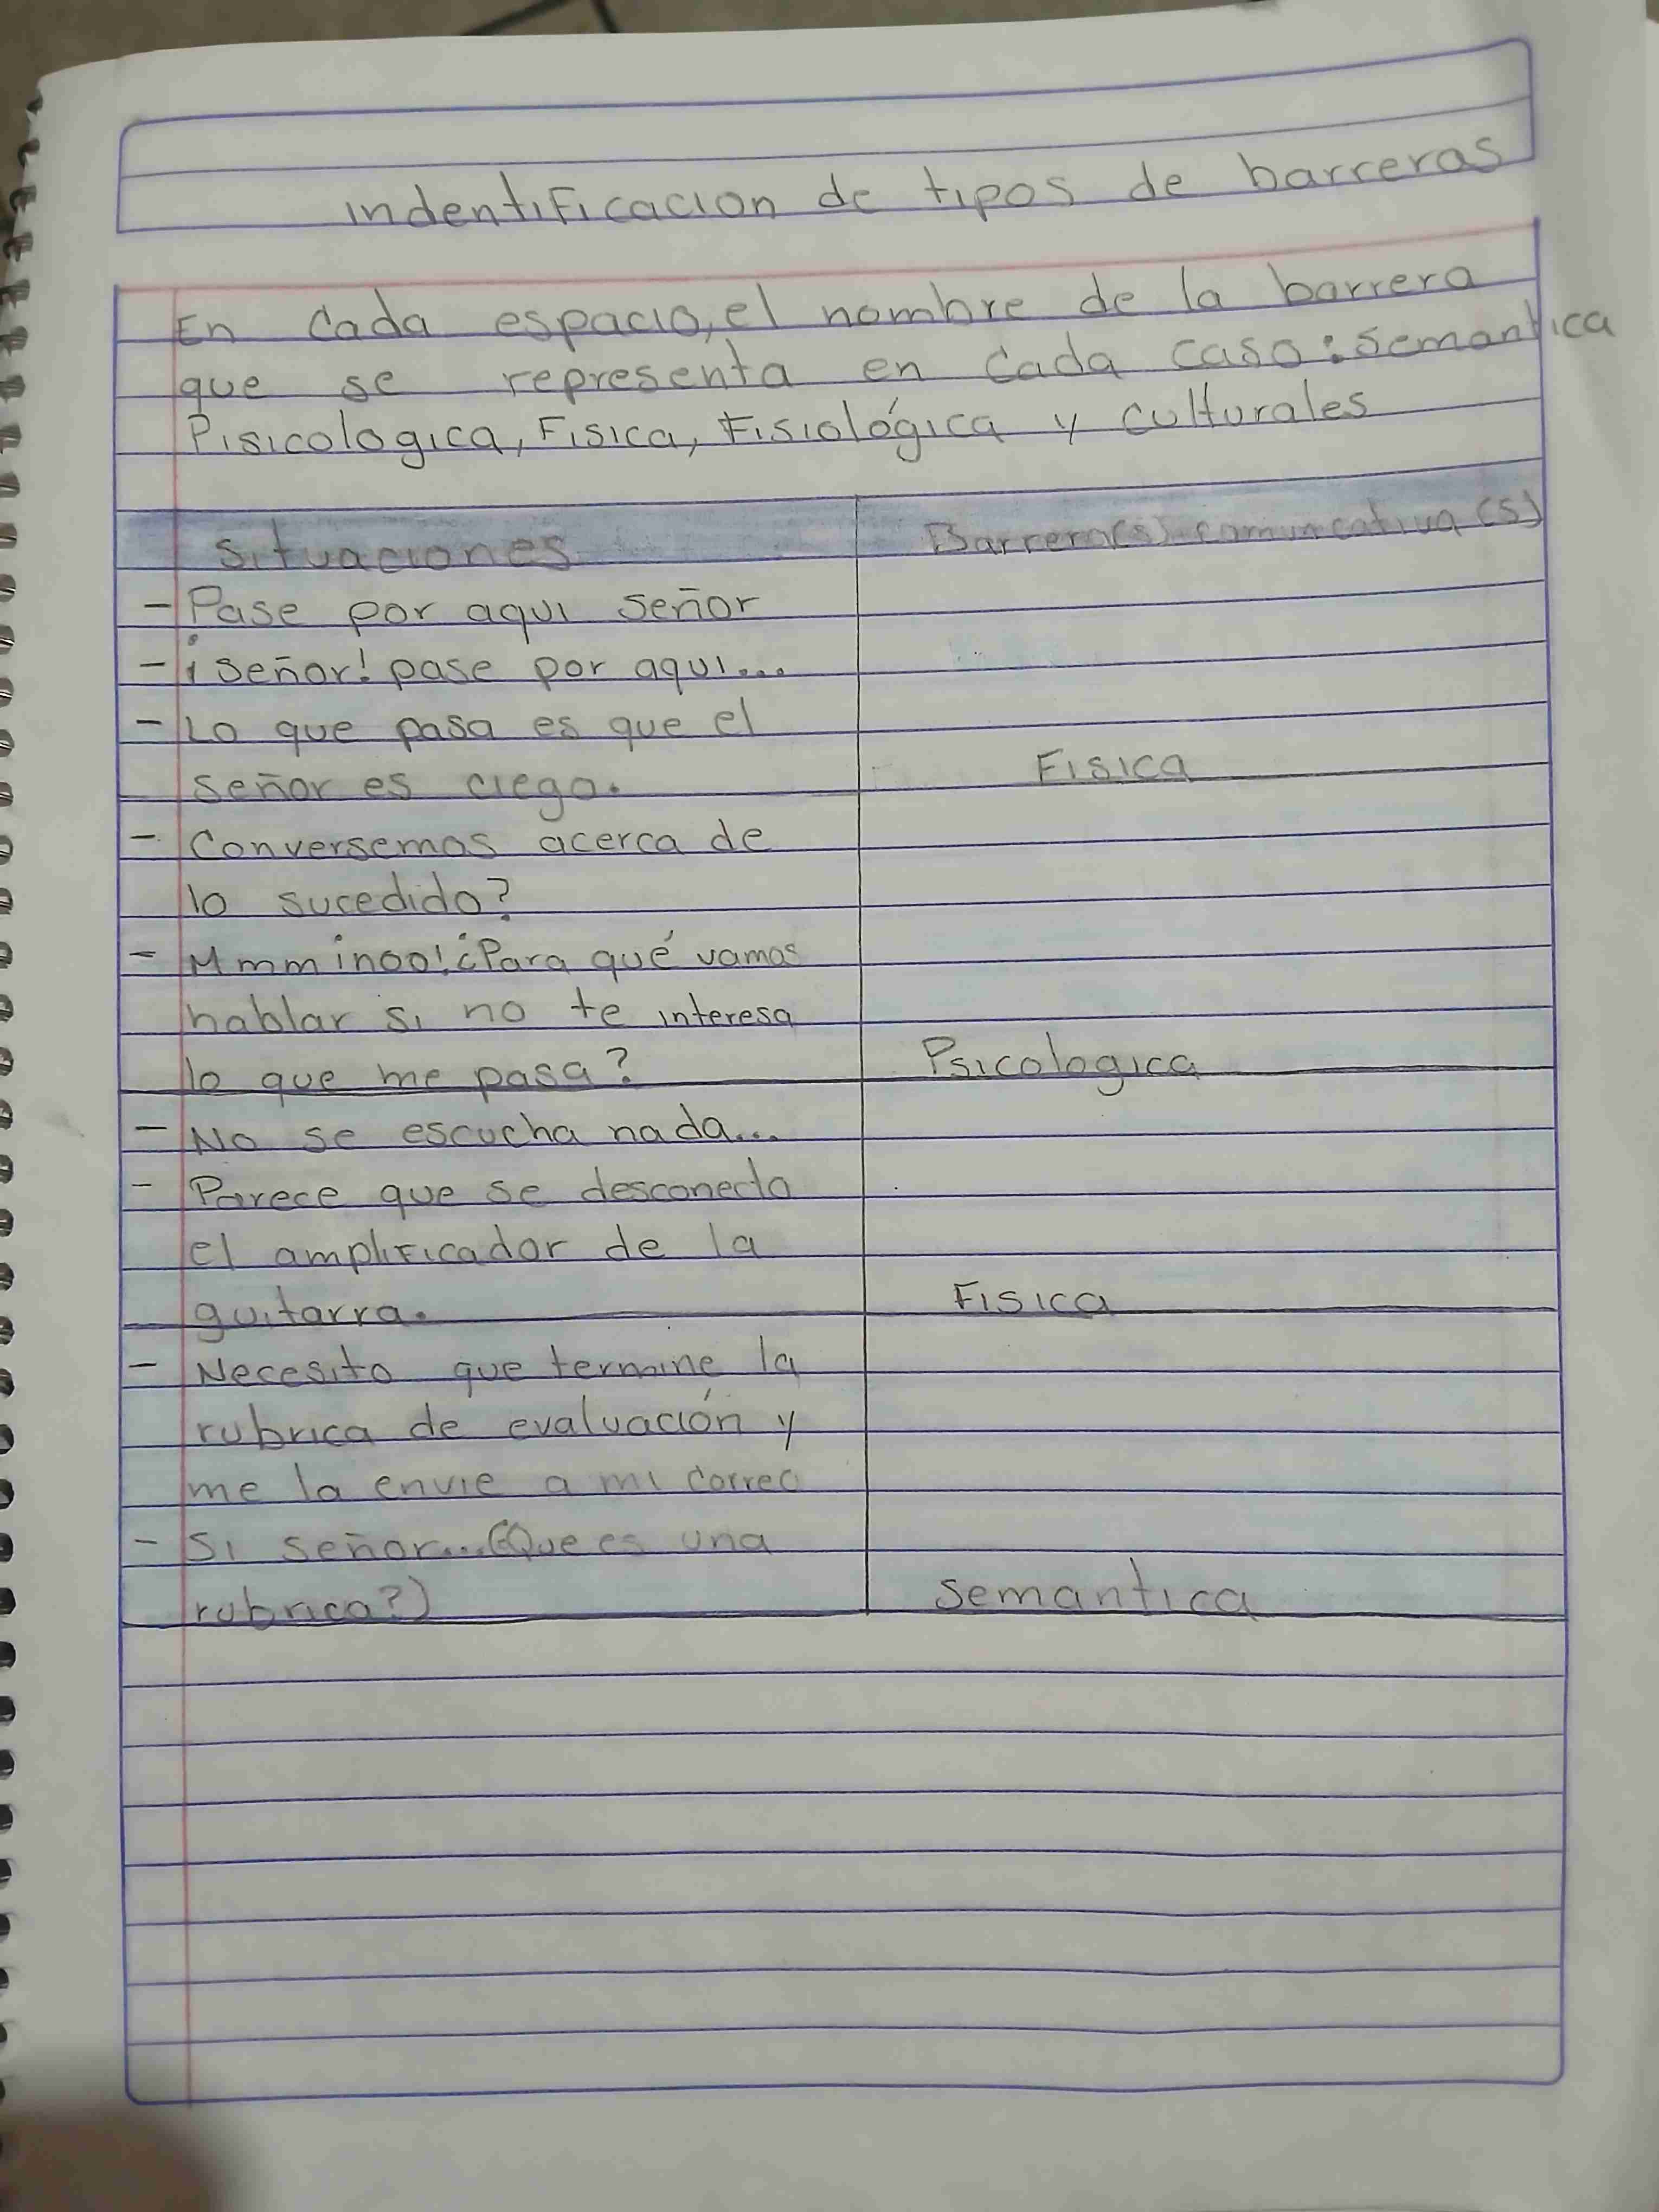 indentificacion de tipos de barreras
En cada espacio, el nombre de la barrera
que se representa en cada caso: semantica
Pisicologica, Fisica, Fisiológica y culturales
Situaciones
Barrera(s) comunicativa(s)
- Pase por aqui señor
- ¡señor! pase por aqui...
- Lo que pasa es que el
señor es ciego.
Fisica
- Conversemos acerca de
lo sucedido?
- Mmm ¡noo! ¿Para qué vamos
hablar si no te interesa
lo que me pasa?
Psicologica
- No se escucha nada...
- Parece que se desconecto
el amplificador de la
guitarra.
Fisica
- Necesito que termine la
rubrica de evaluación y
me la envie a mi correo
- Si señor...(Que es una
rubrica?)
semantica